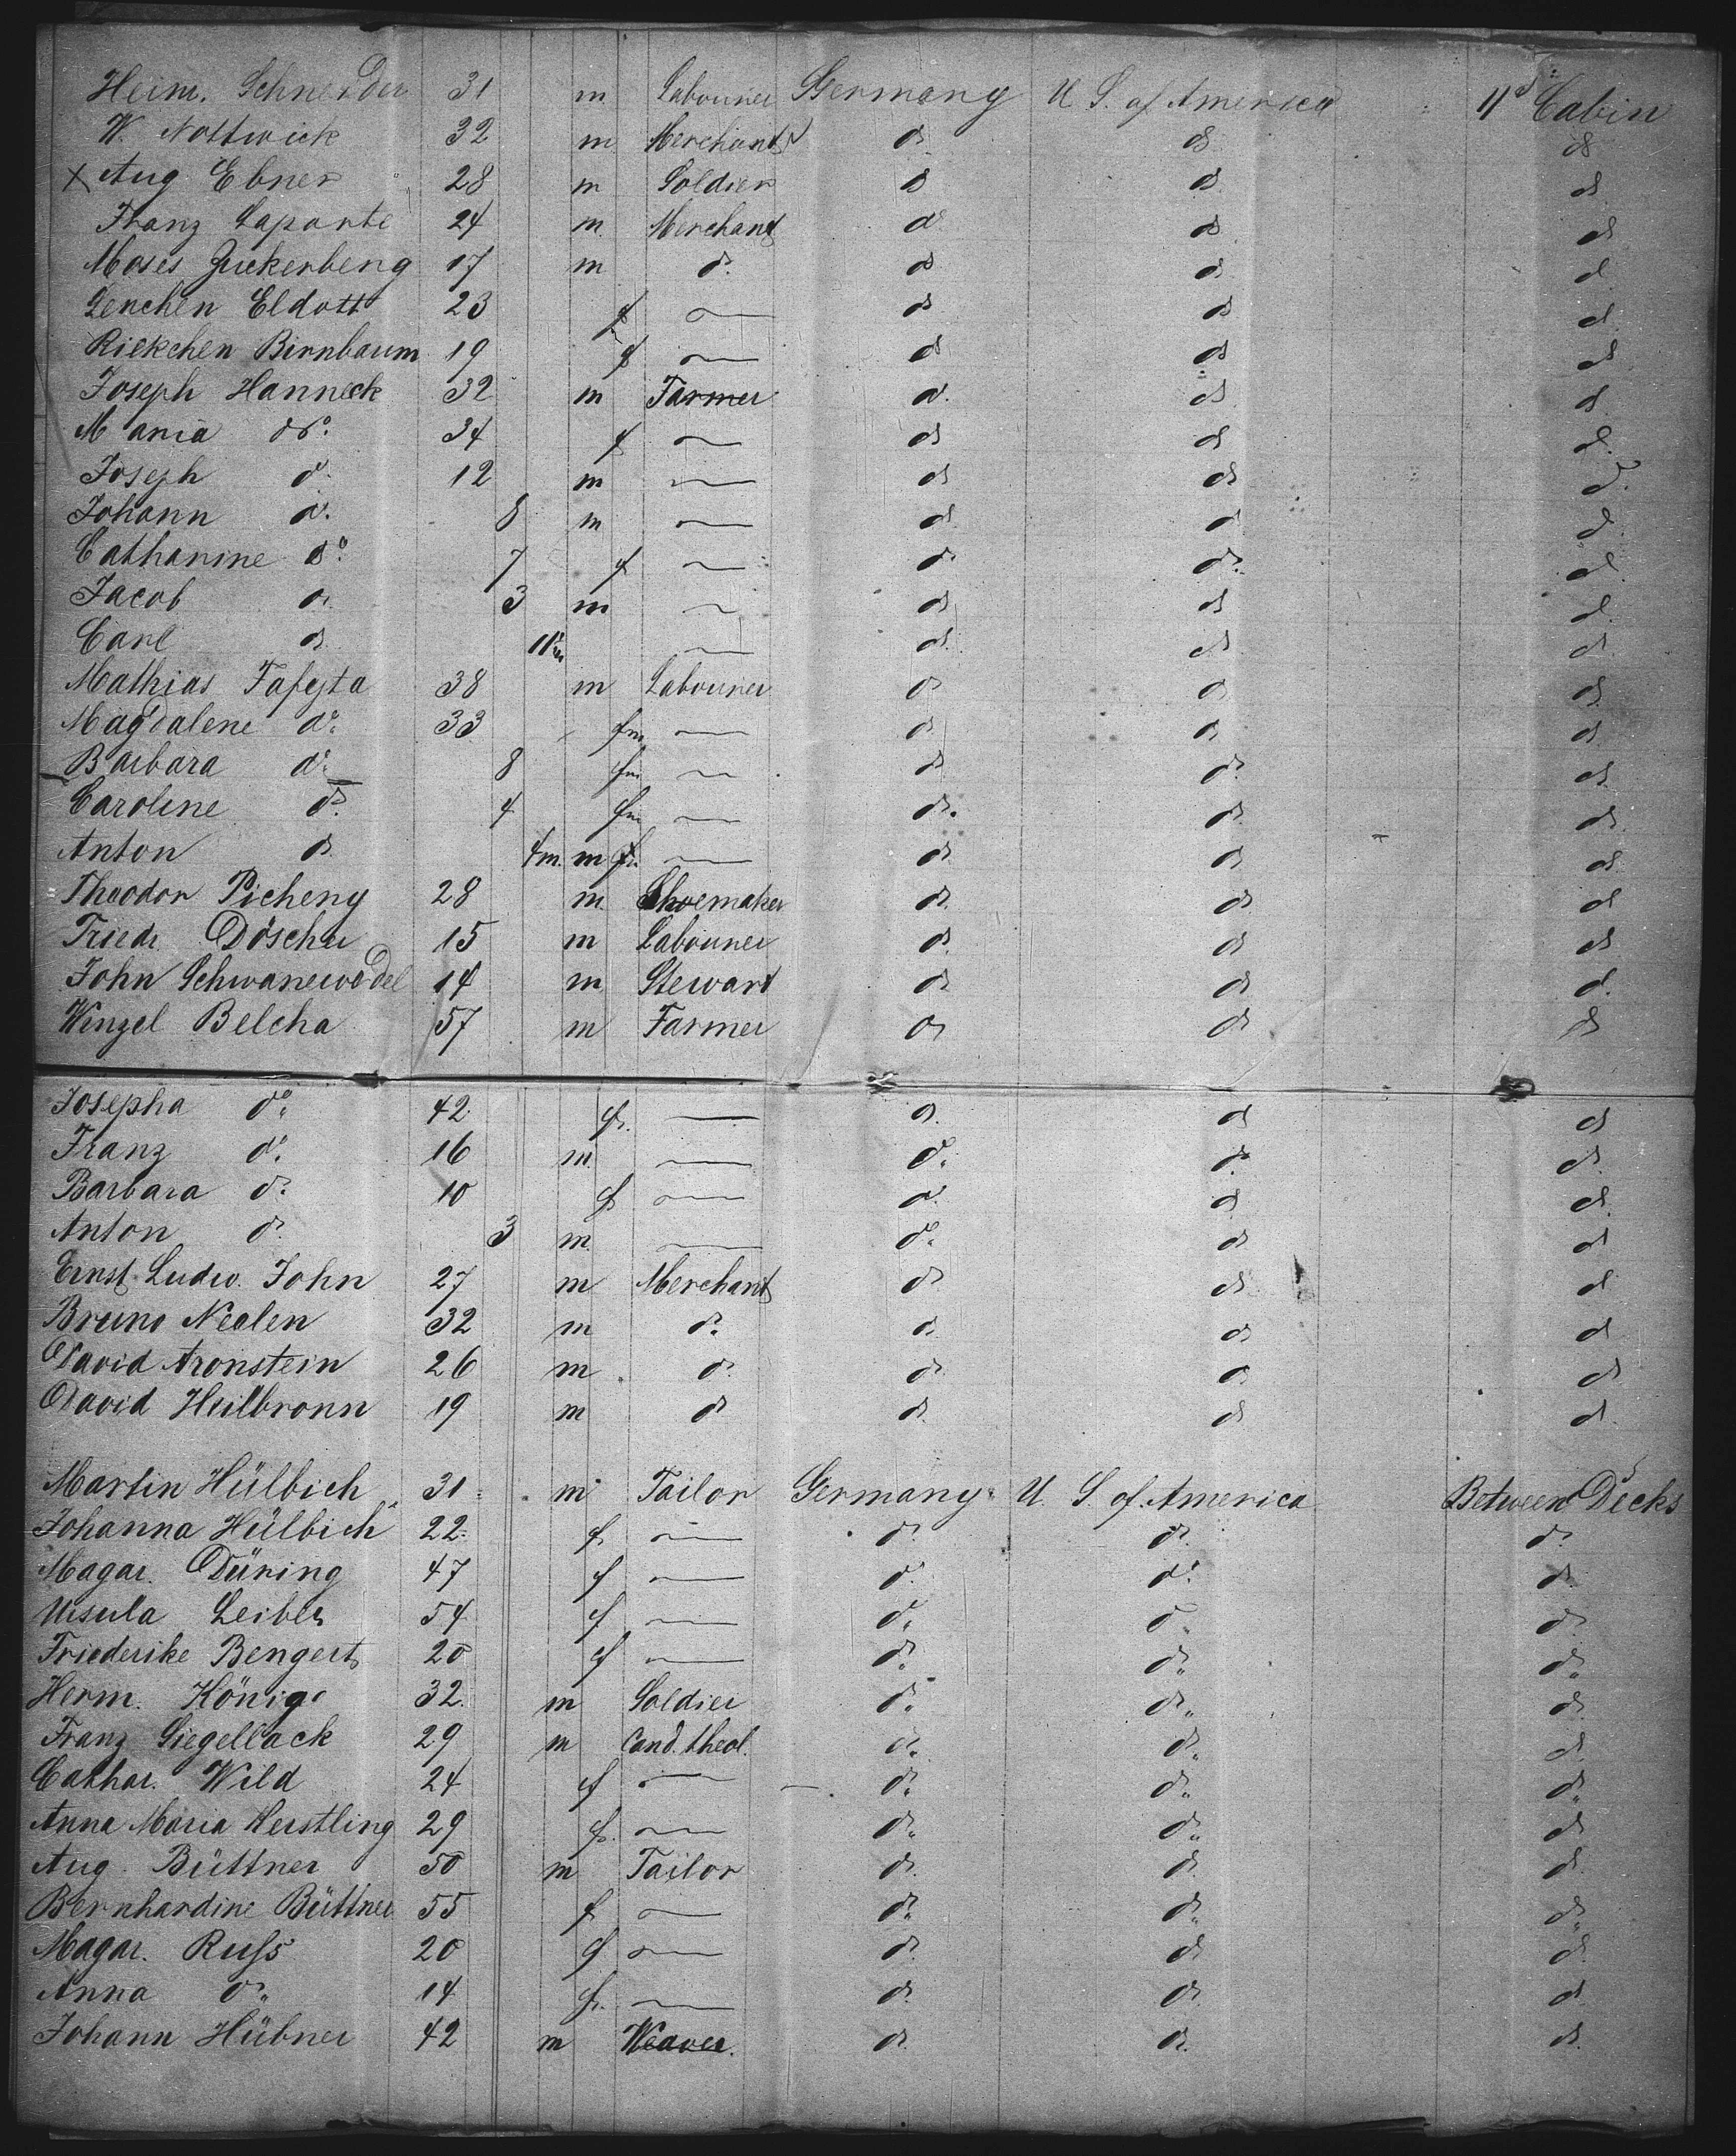 Heinr. Schneider 31 m Labourer Germany U. S. of America IId Cabin
W. Nottwick 32 m Merchant do do do
x Aug. Ebner 28 m Soldier do do do
Franz Laporte 24 m Merchant do do do
Moses Zuckerberg 17 m do do do do
Lenchen Eldott 23 f — do do do
Riekchen Birnbaum 19 f — do do do
Joseph Hanneck 32 m Farmer do do do
Maria do 34 f — do do do
Joseph do 12 m — do do do
Johann do 8 m — do do do
Catharine do 7 f — do do do
Jacob do 3 m — do do do
Carl do 11 — do do do
Mathias Fafejta 38 m Labourer do do do
Magdalene do 33 fm — do do do
Barbara do 8 fm — do do do
Caroline do 4 fm — do do do
Anton do 4m. m — do do do
Theodor Picheny 28 m Shoemaker do do do
Friedr. Döscher 15 m Labourer do do do
John Schwanewedel 14 m Stewart do do do
Wenzel Belcha 57 m Farmer do do do
Josepha do 42 f. — do do do
Franz do 16 m. — do do do
Barbara do 10 f — do do do
Anton do 3 m. — do do do
Ernst Ludw. John 27 m Merchant do do do
Bruno Nealen 32 m do do do do
David Aronstein 26 m do do do do
David Heilbronn 19 m do do do do
Martin Hülbich 31 m Tailor Germany U. S. of America Between Decks
Johanna Hülbich 22 f — do do do
Magar. Düring 47 f — do do do
Ursula Leible 54 f — do do do
Friederike Bengert 20 f — do do do
Herm. König 32 m Soldier do do do
Franz Siegellack 29 m Cand. theol. do do do
Cathar. Wild 24 f — do do do
Anna Maria Herstling 29 f. — do do do
Aug. Büttner 50 m Tailor do do do
Bernhardine Büttner 55 f — do do do
Magar. Russ 20 f — do do do
Anna do 14 f. — do do do
Johann Hübner 42 m Weaver. do do do